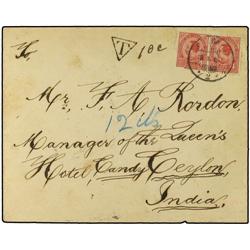 To,
T
10c
Mr, F. A. Rordon.
12 cts
Manager of the Queen's
Hotel, Candy Ceylon,
India.